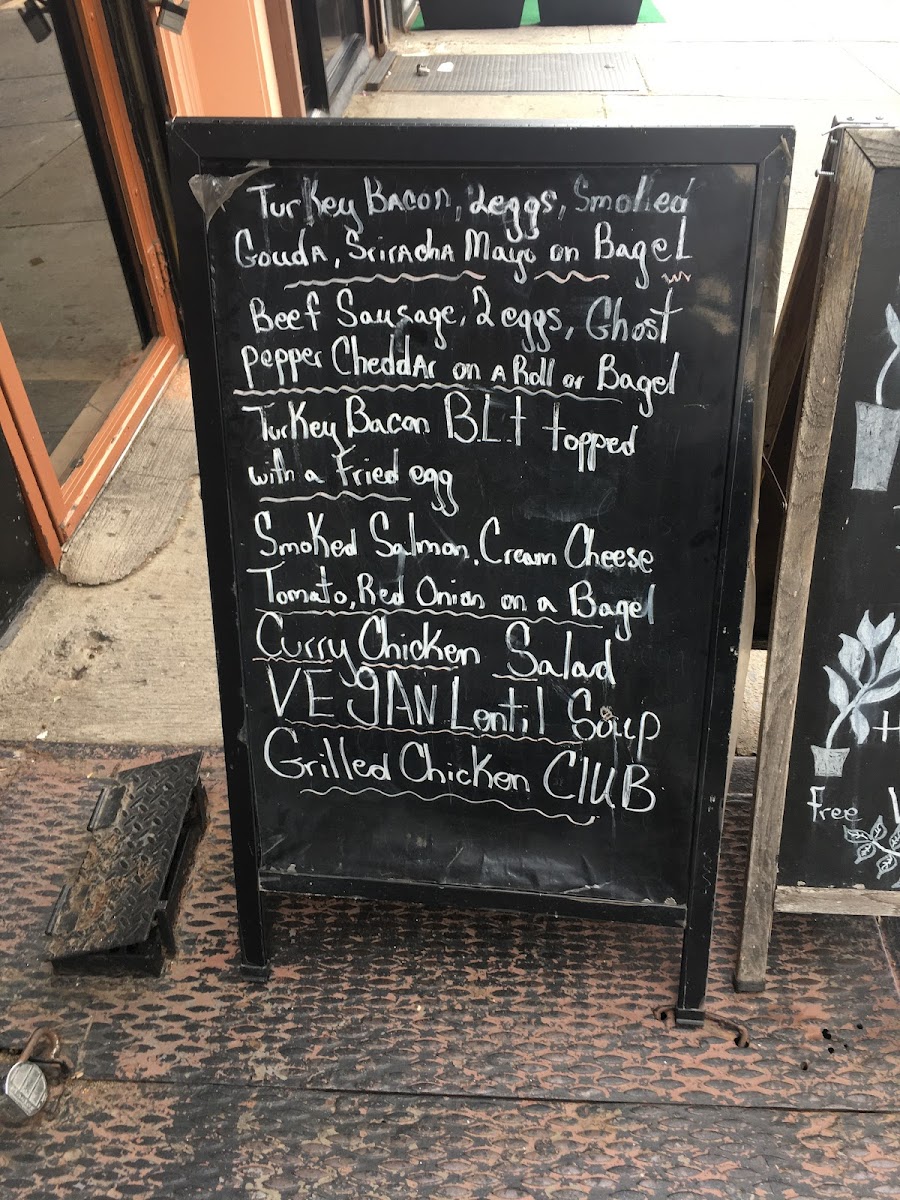 Turkey Bacon, 2eggs, Smoked
Gouda, Sriracha Mayo on Bagel
Beef Sausage, 2 eggs, Ghost
pepper Cheddar on a Roll or Bagel
Turkey Bacon B.L.t topped
with a Fried egg
Smoked Salmon, Cream Cheese
Tomato, Red Onion on a Bagel
Curry Chicken Salad
VEGAN Lentil Soup
Grilled Chicken ClUB
Free